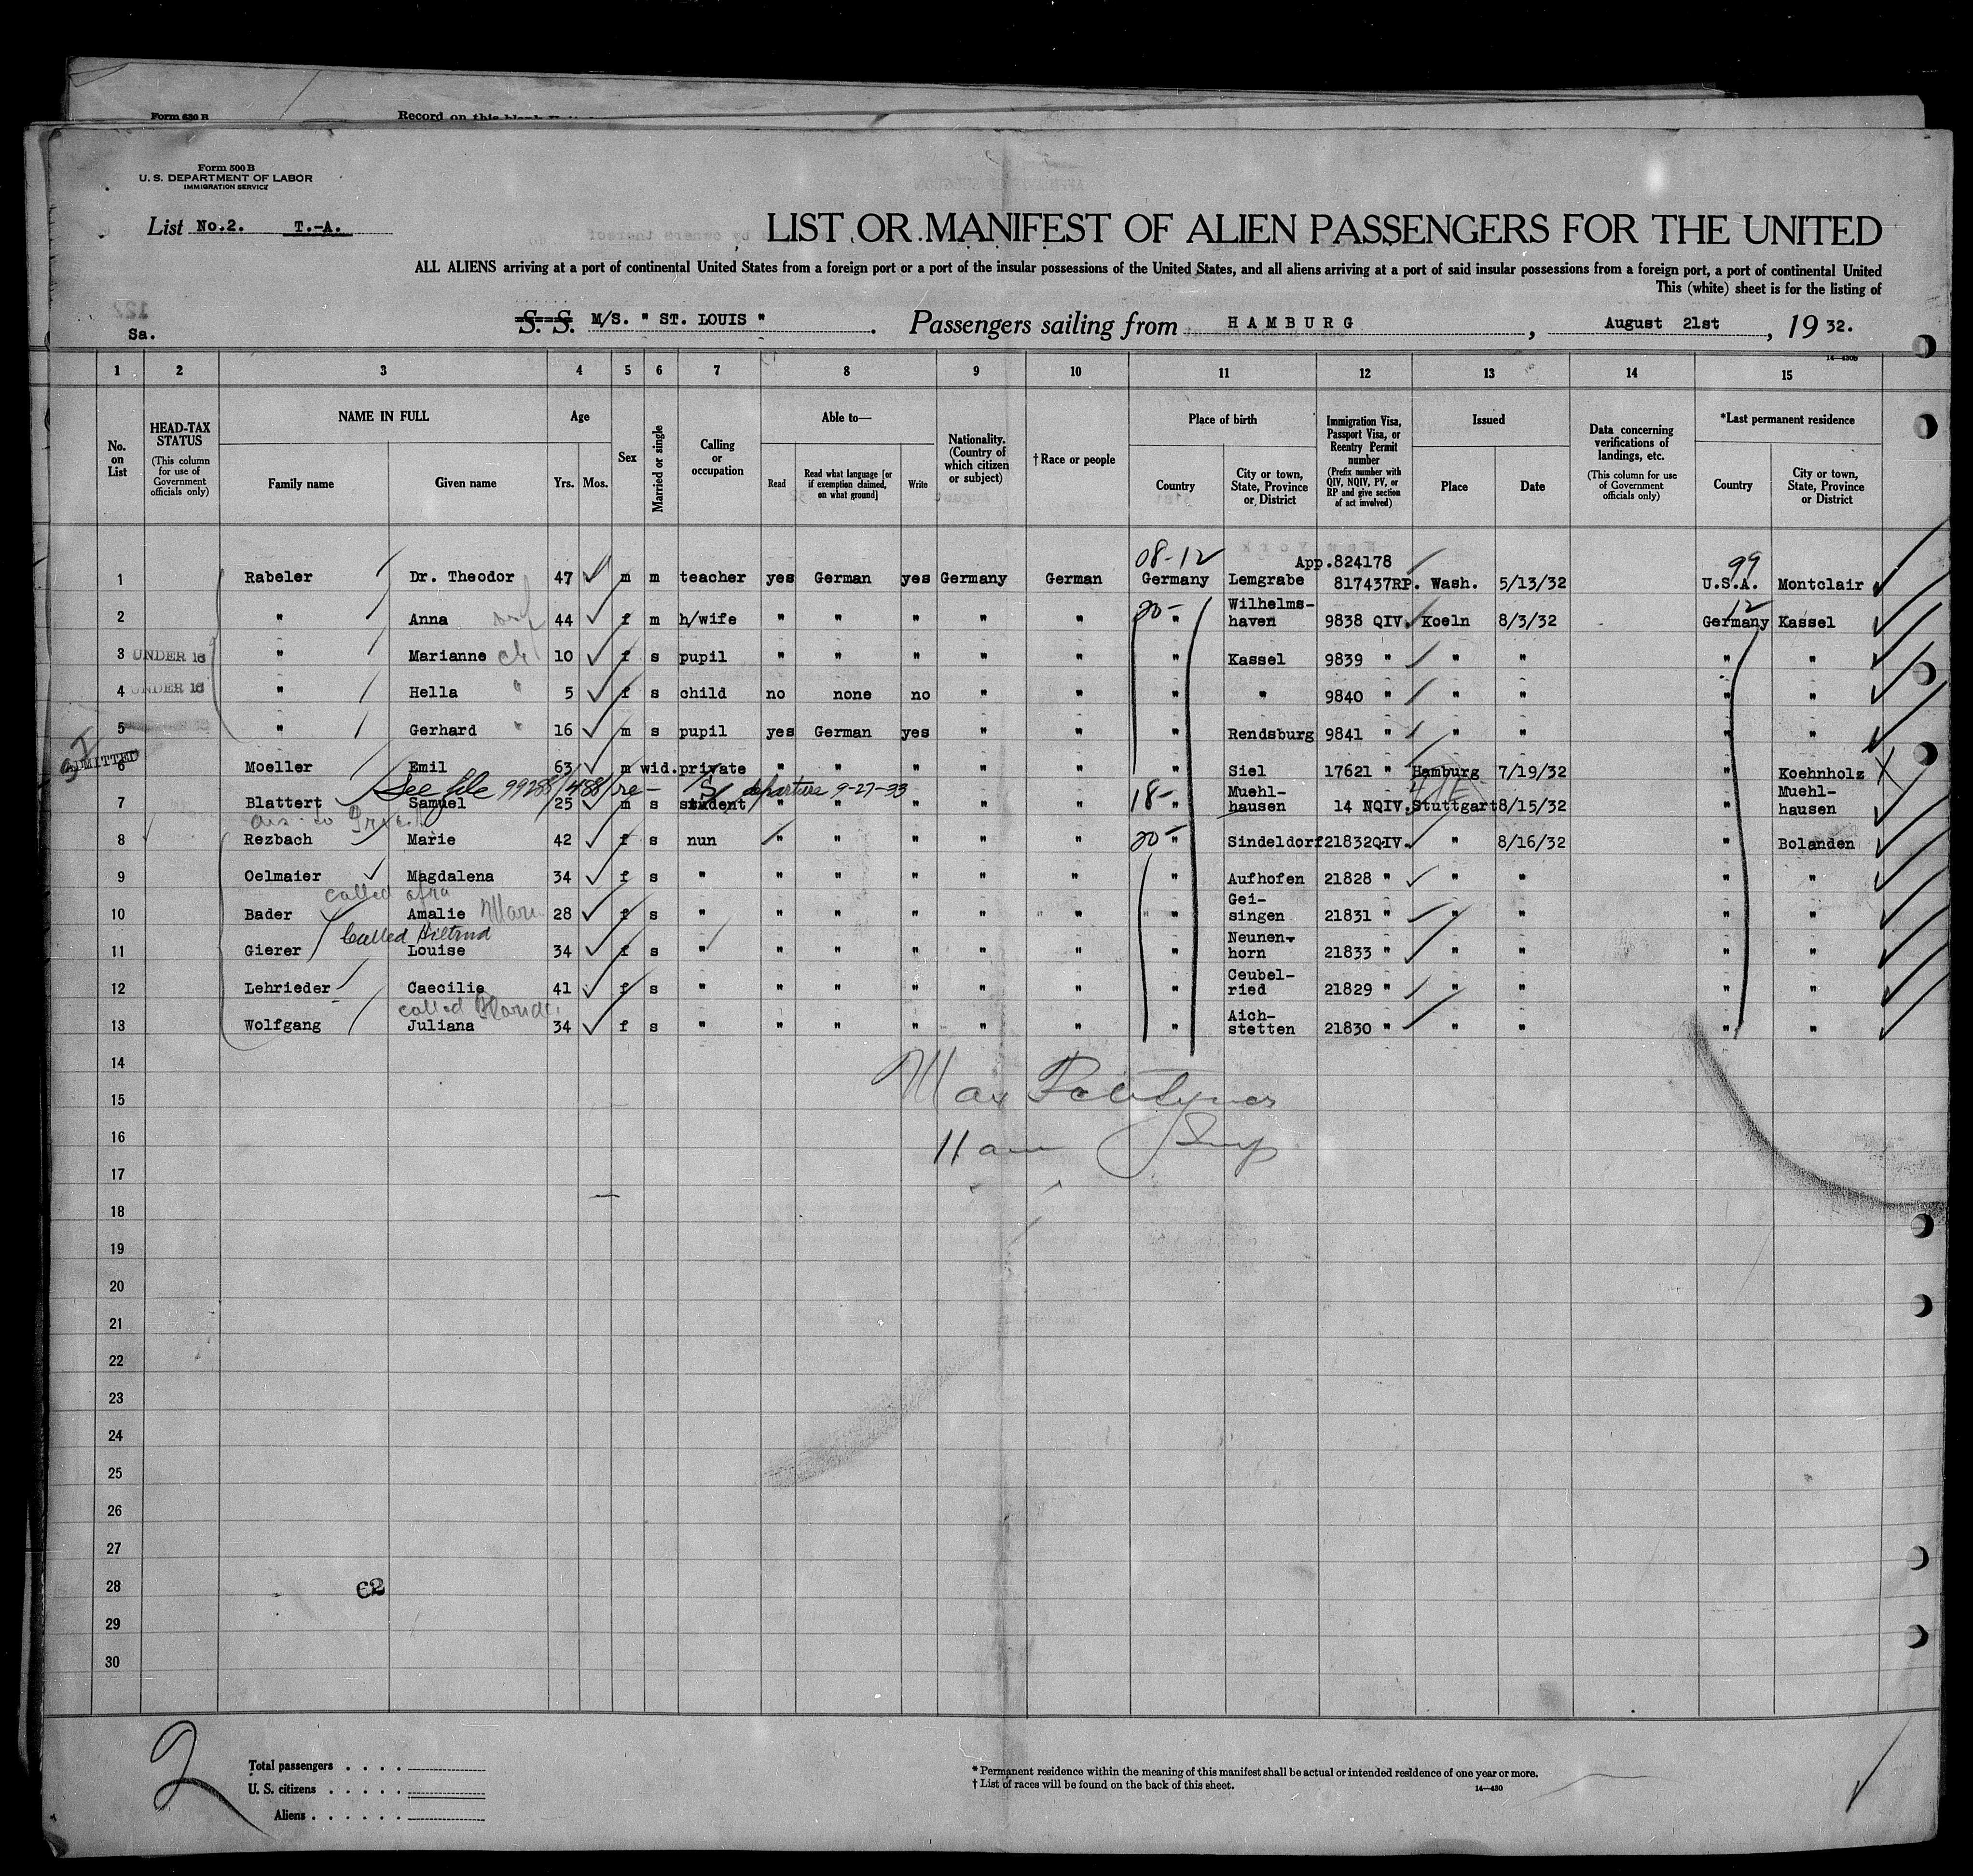 Form 630 B
Record on this blank
Form 500 B
U. S. DEPARTMENT OF LABOR
IMMIGRATION SERVICE
List No.2. T.-A.
LIST OR MANIFEST OF ALIEN PASSENGERS FOR THE UNITED
ALL ALIENS arriving at a port of continental United States from a foreign port or a port of the insular possessions of the United States, and all aliens arriving at a port of said insular possessions from a foreign port, a port of continental United
This (white) sheet is for the listing of
Sa.
S. S. M/S. " ST. LOUIS ". Passengers sailing from HAMBURG, August 21st, 19 32.
14—430b
1 2 3 4 5 6 7 8 9 10 11 12 13 14 15
No. on List
HEAD-TAX STATUS (This column for use of Government officials only)
NAME IN FULL
Family name Given name
Age
Yrs. Mos.
Sex
Married or single
Calling or occupation
Able to—
Read Read what language [or if exemption claimed, on what ground] Write
Nationality. (Country of which citizen or subject)
†Race or people
Place of birth
Country City or town, State, Province or District
Immigration Visa, Passport Visa, or Reentry Permit number (Prefix number with QIV, NQIV, PV, or RP and give section of act involved)
Issued
Place Date
Data concerning verifications of landings, etc. (This column for use of Government officials only)
*Last permanent residence
Country City or town, State, Province or District
08-12 App.824178 99
1 Rabeler Dr. Theodor 47 m m teacher yes German yes Germany German Germany Lemgrabe 817437RP. Wash. 5/13/32 U.S.A. Montclair
20- 12
2 " Anna 44 f m h/wife " " " " " " Wilhelms-haven 9838 QIV. Koeln 8/3/32 Germany Kassel
3 UNDER 16 " Marianne ch 10 f s pupil " " " " " " Kassel 9839 " " " " "
4 UNDER 16 " Hella " 5 f s child no none no " " " " 9840 " " " " "
5 " Gerhard " 16 m s pupil yes German yes " " " Rendsburg 9841 " " " " "
ADMITTED
6 Moeller Emil 63 m wid. private " " " " " " Siel 17621 " Hamburg 7/19/32 " Koehnholz
See file 99288/488 re- S departure 9-27-33
7 Blattert Samuel 25 m s student " " " " " 18- " Muehl-hausen 14 NQIV. Stuttgart 8/15/32 " Muehl-hausen
8 Rezbach Marie 42 f s nun " " " " " 20- " Sindeldorf 21832QIV. " 8/16/32 " Bolanden
9 Oelmaier Magdalena 34 f s " " " " " " " Aufhofen 21828 " " " " "
called afra
10 Bader Amalie 28 f s " " " " " " " Gei-singen 21831 " " " " "
Called Hiltrud
11 Gierer Louise 34 f s " " " " " " " Neunen-horn 21833 " " " " "
12 Lehrieder Caecilie 41 f s " " " " " " " Ceubel-ried 21829 " " " " "
called
13 Wolfgang Juliana 34 f s " " " " " " " Aich-stetten 21830 " " " " "
14
15 Max
16 11 am Insp
17
18
19
20
21
22
23
24
25
26
27
28 62
29
30
2
Total passengers . . . .
U. S. citizens . . . . .
Aliens . . . . . .
* Permanent residence within the meaning of this manifest shall be actual or intended residence of one year or more.
† List of races will be found on the back of this sheet.
14—430